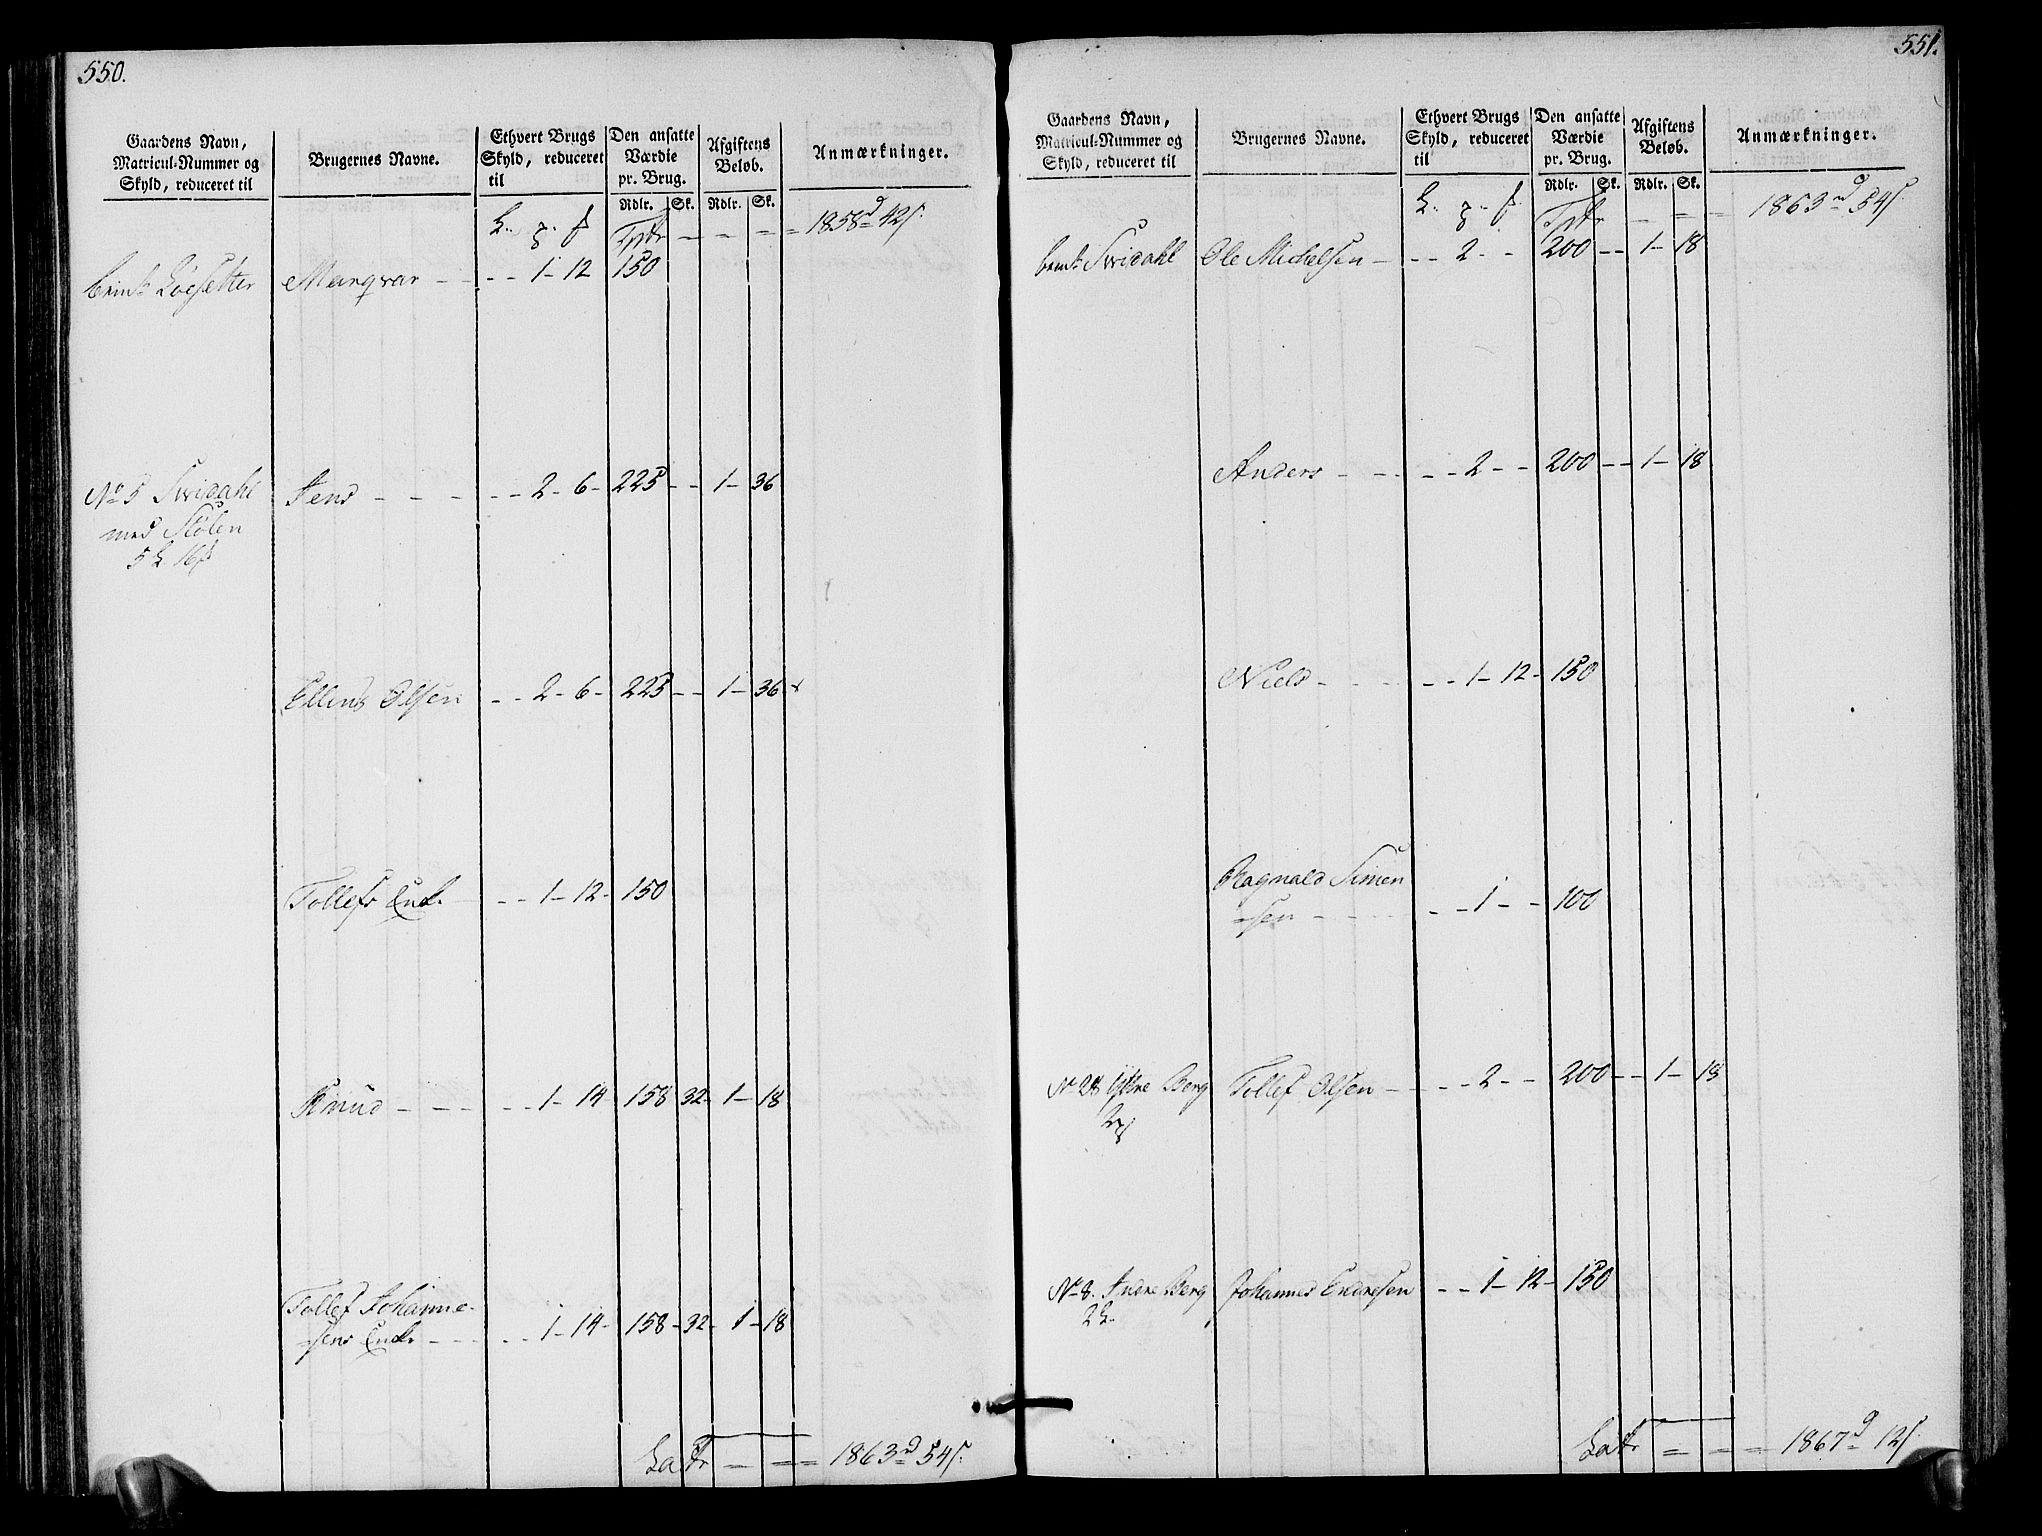 550.
Gaardens Navn,
Matricul-Nummer og
Skyld, reduceret til
Brugernes Navne.
Ethvert Brugs
Skyld, reduceret
til
Den ansatte
Værdie
pr. Brug.
Afgiftens
Beløb.
Anmærkninger.
Rdlr. Sk. Rdlr. Sk.
Transp. 1858 d 42 s.
Marqvar - - 1 - 12 150
No 5 Svidahl Jens - - 2 - 6 - 225 - - 1 - 36
med Stølen
5 L 16
Ellend Olsen - - 2 - 6 - 225 - - 1 - 36
Tollefs Enke - - 1 - 12 - 150
Knud - - 1 - 14 158 32 - 1 - 18
Tollef Johanne-
sens Enke - - 1 - 14 - 158 - 32 - 1 - 18
Latr 1863 d 54 s.
551.
Gaardens Navn,
Matricul-Nummer og
Skyld, reduceret til
Brugernes Navne.
Ethvert Brugs
Skyld, reduceret
til
Den ansatte
Værdie
pr. Brug.
Afgiftens
Beløb.
Anmærkninger.
Rdlr. Sk. Rdlr. Sk.
Transp. 1863 d 54 s.
Svidahl Ole Michelsen - - - 2 - - 200 - - 1 - 18
Anders - - 2 - - 200 - - 1 - 18
Niels - - 1 - 12 - 150
Ragnald Simen
-sen - - 1 - - 100
Ytre Berg Tollef Olsen - - - 2 - - 200 - - 1 - 18
No 8. Indre Berg Johannes Endresen - - 1 - 12 - 150
2 L.
Latr 1867 d 12 s.